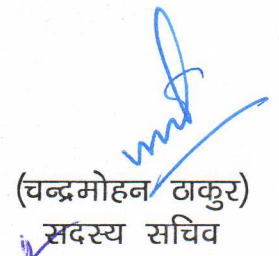 (चन्द्रमोहन ठाकुर)
सदस्य सचिव